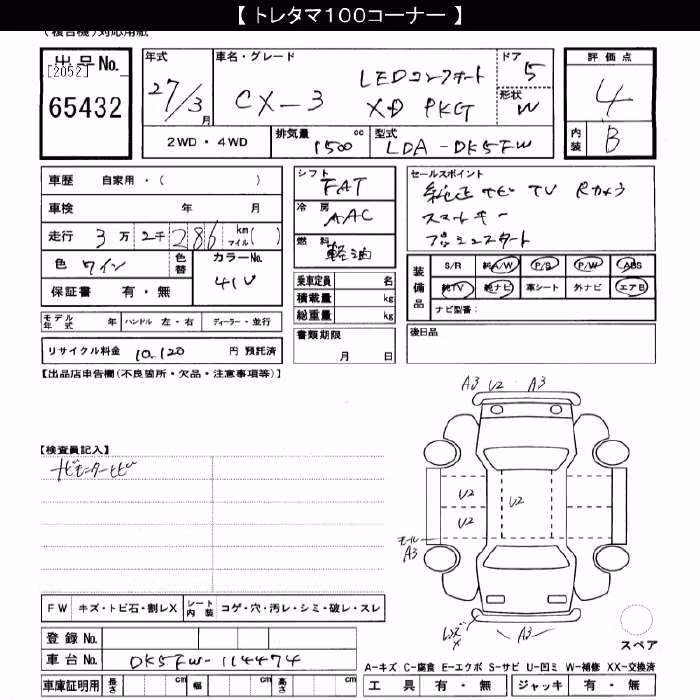 【 トレタマ100コーナー 】
(複合機)対応用紙
出品No.
[2052]
65432
年式
27/3月
車名・グレード
CX-3
LEDコンフォート
XD PKG
ドア
5
形状
W
評価点
4
内装
B
2WD・4WD
排気量
1500 cc
型式
LDA-DK5FW
車歴 自家用・( )
車検 年 月
走行 3万2千286km マイル( )
色 ワイン
色替
カラーNo.
41V
保証書 有・無
シフト
FAT
冷房
AAC
燃料
軽油
乗車定員 名
積載量 kg
総重量 kg
書類期限
月 日
セールスポイント
純正ナビ TV Rカメラ
スマートキー
プッシュスタート
装備品
S/R 純A/W P/S P/W ABS
純TV 純ナビ 革シート 外ナビ エアB
ナビ型番:
後日品
モデル年式 年 ハンドル 左・右 ディーラー・並行
リサイクル料金 10,120 円 預託済
【出品店申告欄(不良箇所・欠品・注意事項等)】
【検査員記入】
ナビモニターヒビ
A3 U2 A3
U2
U2
U2
モール
A3
X
A3
スペア
FW キズ・トビ石・割レX シート内装 コゲ・穴・汚レ・シミ・破レ・スレ
登録No.
車台No. DK5FW-114474
車庫証明用 長さ cm 幅 cm 高さ cm
A-キズ C-腐食 E-エクボ S-サビ U-凹ミ W-補修 XX-交換済
工具 有・無 ジャッキ 有・無